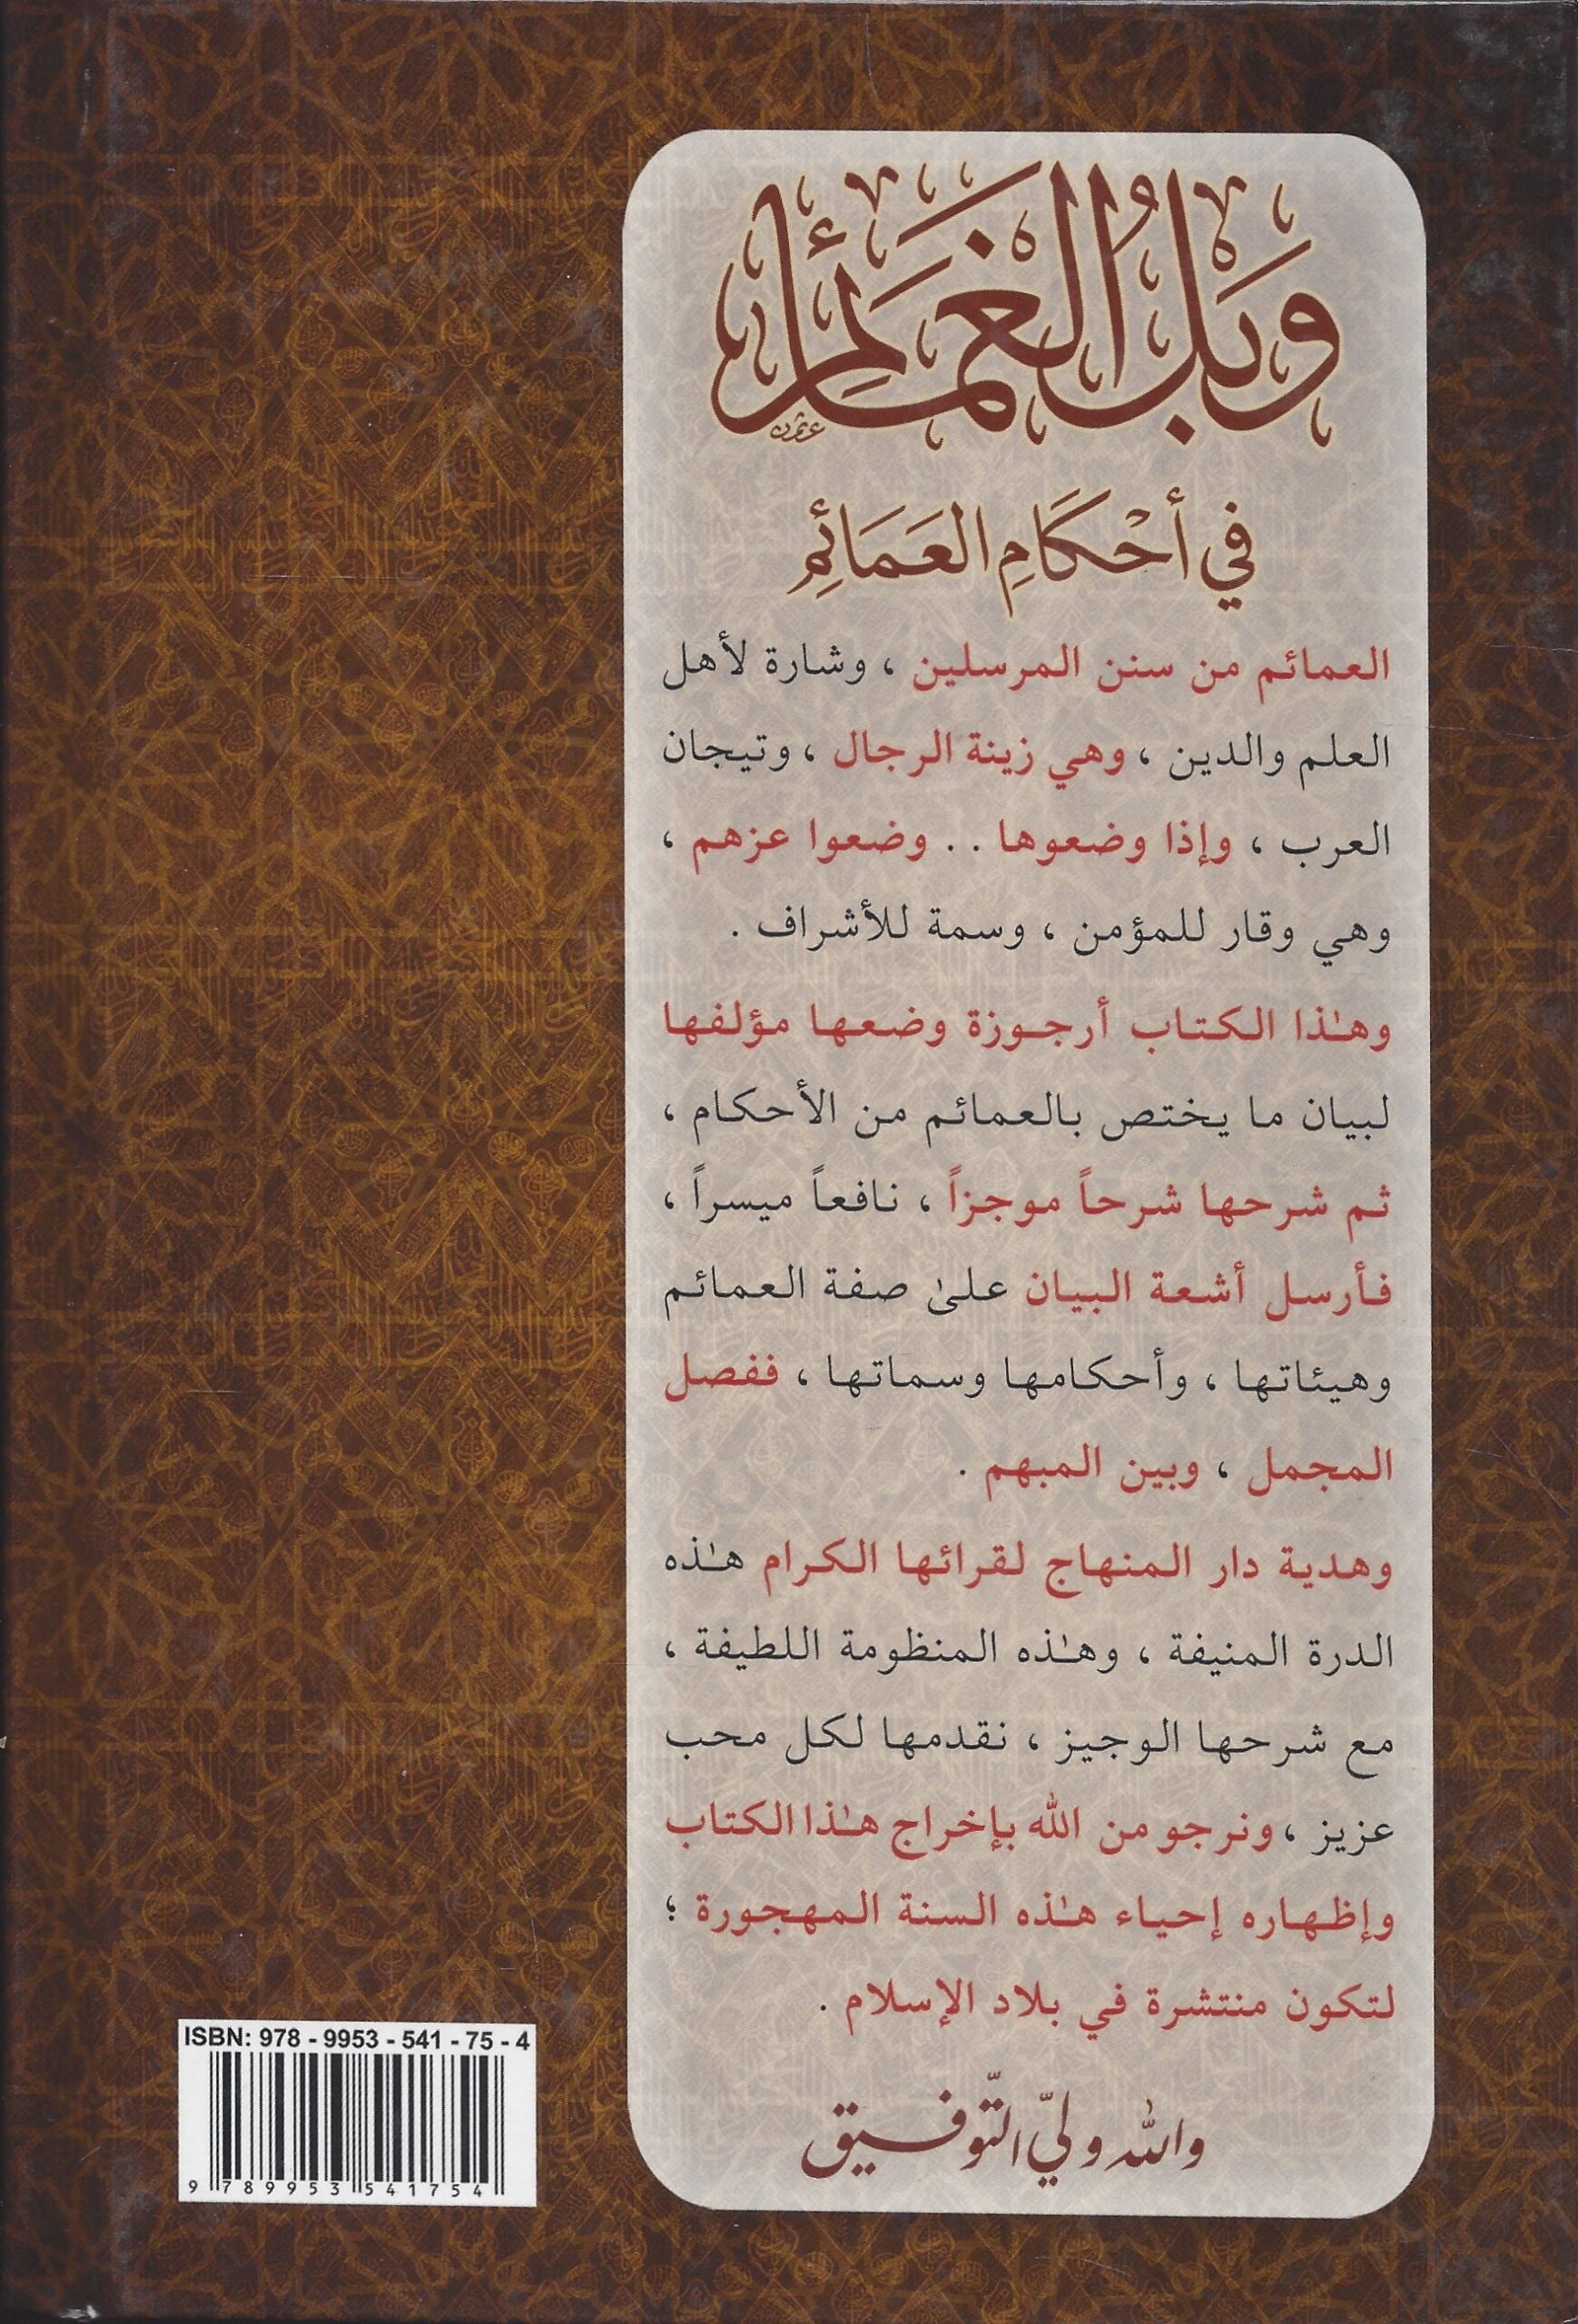 وَبَلُ الغَمَائِم
عثمن
في أَحْكَامِ العَمَائِمِ
العمائم من سنن المرسلين ، وشارة لأهل
العلم والدين ، وهي زينة الرجال ، وتيجان
العرب ، وإذا وضعوها . . وضعوا عزهم ،
وهي وقار للمؤمن ، وسمة للأشراف .
وهٰذا الكتاب أرجوزة وضعها مؤلفها
لبيان ما يختص بالعمائم من الأحكام ،
ثم شرحها شرحاً موجزاً ، نافعاً ميسراً ،
فأرسل أشعة البيان علىٰ صفة العمائم
وهيئاتها ، وأحكامها وسماتها ، ففصل
المجمل ، وبين المبهم .
وهدية دار المنهاج لقرائها الكرام هٰذه
الدرة المنيفة ، وهٰذه المنظومة اللطيفة ،
مع شرحها الوجيز ، نقدمها لكل محب
عزيز ، ونرجو من الله بإخراج هٰذا الكتاب
وإظهاره إحياء هٰذه السنة المهجورة ؛
لتكون منتشرة في بلاد الإسلام .
والله وليّ التّوفيق
ISBN: 978 - 9953 - 541 - 75 - 4
9 789953 541754